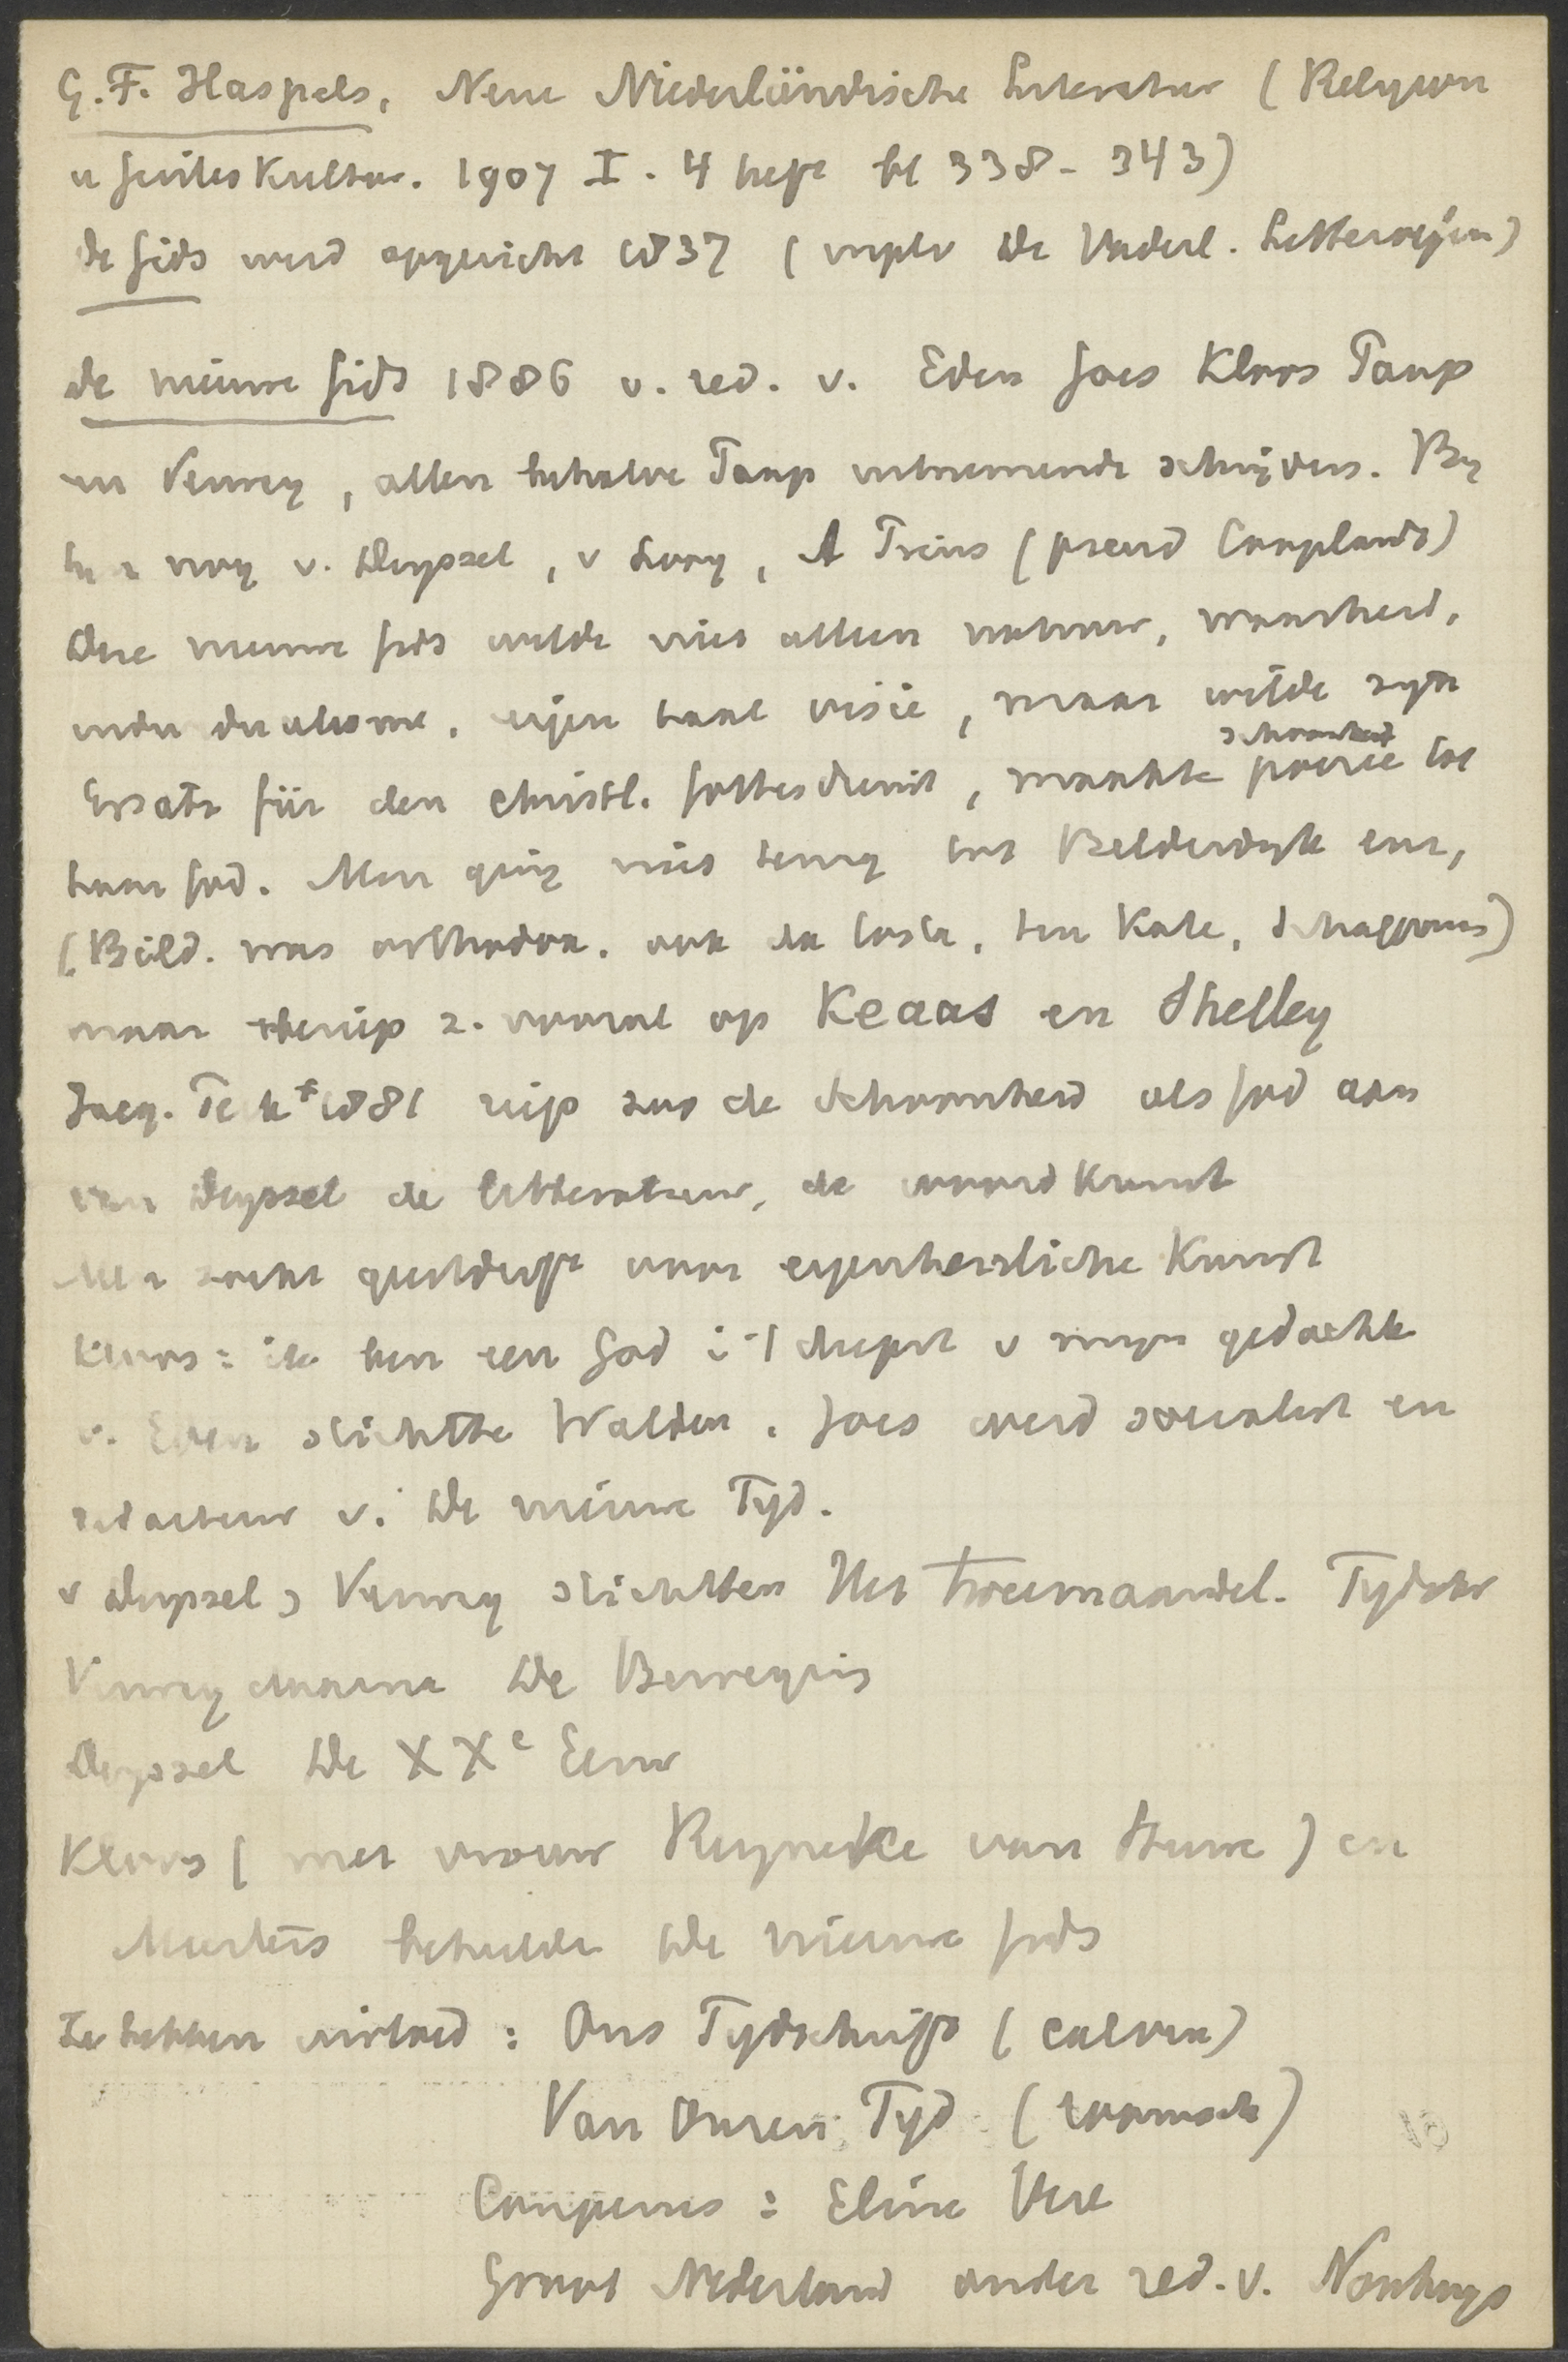 G.F. Haspels, Neue Niederländische Literatur (Religion
u Geisteskultur. 1907 I. 4 heft bl 338-343)
de Gids werd opgericht 1837 (vnpl v de Vaderl. Letteroefen)
de nieuwe Gids 1886 o. red. v. Eden Goes Kloos Taup
en Verwey, allen behalve Taup uitnemende schrijvers. By
hen nog v. Deyssel, v Looy, A Treins (pseud Cooplandt)
Deze nieuwe Gids wilde niet alleen natuur, waarheid,
individualisme, eigen taal visie, maar wilde zyn
Ersatz für den christl. Gottesdienst, maakte poezie tot
schoonheid
haar God. Men ging niet terug tot Bilderdyk enz,
(Bild. was orthodox, ook da Costa, ten Kate, Schaepman)
maar beriep z. vooral op Keaas en Shelley
Jacq. Perk † 1881 riep zus de Schoonheid als God aan
van Deyssel de litteratuur, de woordkunst
Men zocht geestdrift voor eigenherrliche Kunst
Kloos: ik ben een God i 't diepst v mijn gedachte
v. Eden stichtte Walden. Goes werd socialist en
redacteur v. De nieuwe Tyd.
v Deyssel & Verwey stichtten Het Tweemaandel. Tydschr
Verwey daarna De Beweging
Deyssel De XXe Eeuw
Kloos (met vrouw Reyneke van Stuwe) en
Maertens behielden De nieuwe Gids
Ze hebben invloed: Ons Tydschrift (calvin)
Van Onzen Tyd (roomsch)
Couperus: Eline Vere
Groot Nederland onder red. v. Nouhuys